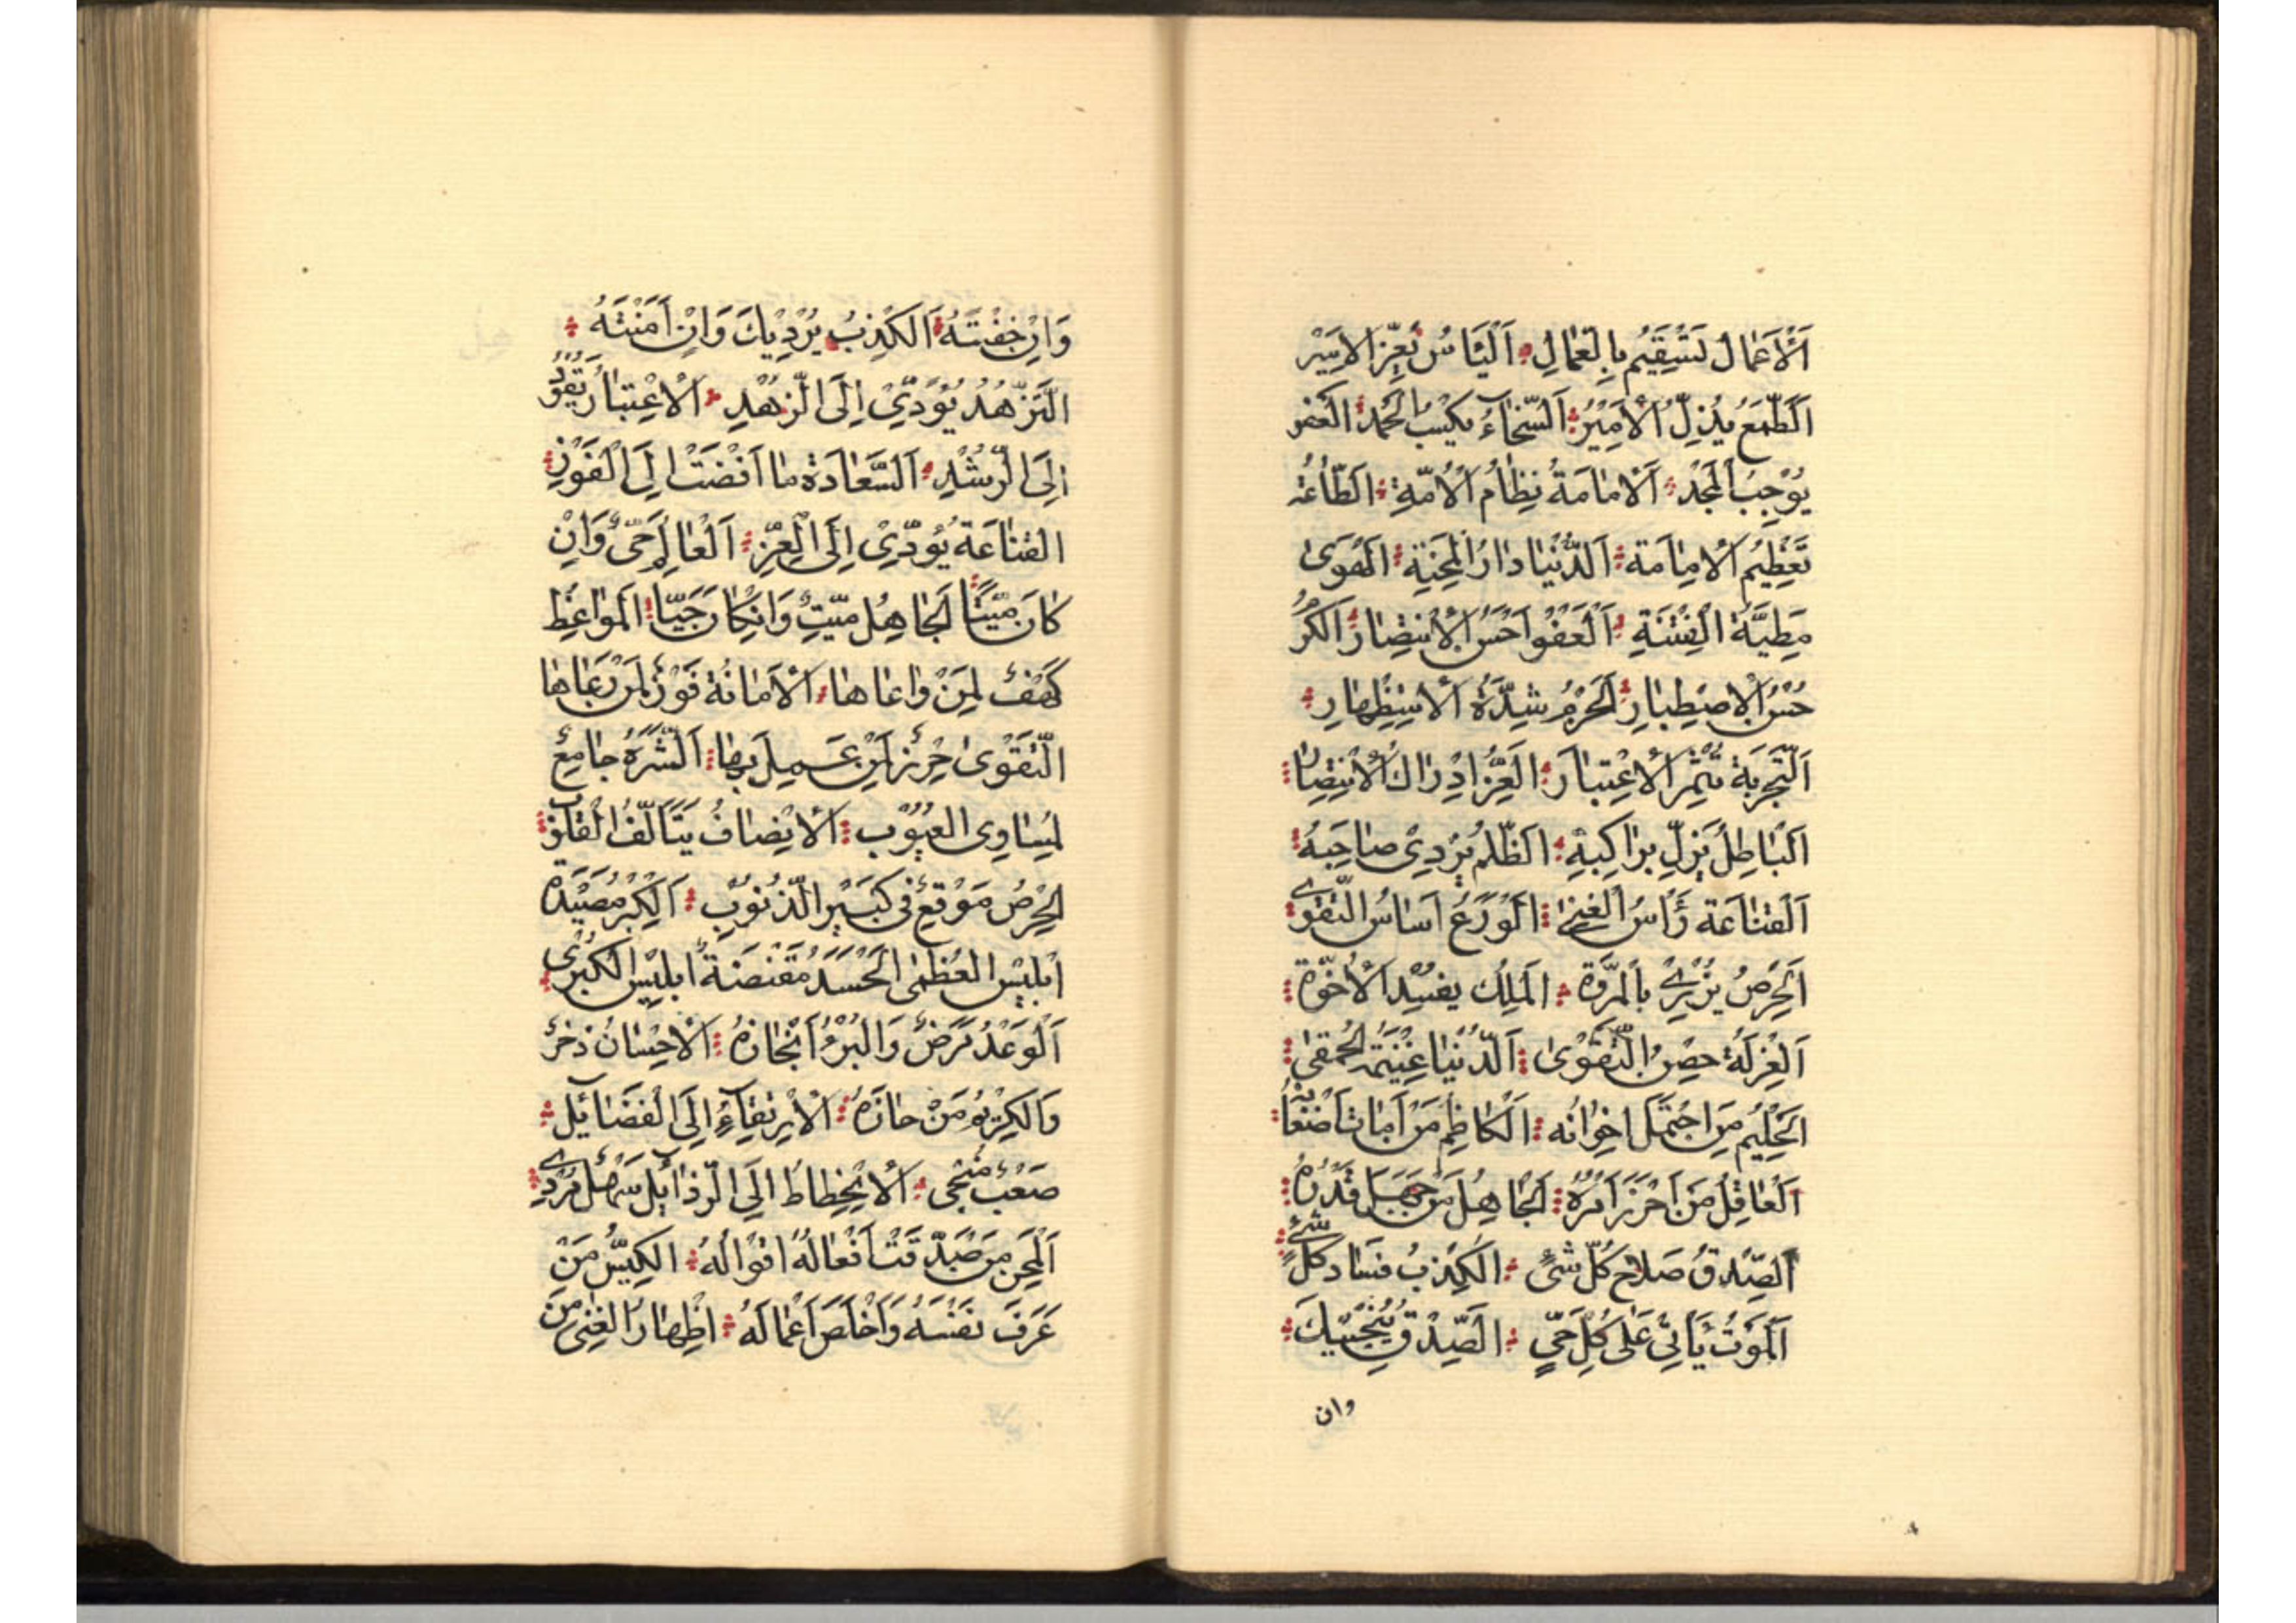 اَلْاَعْمَال تَسْتَقِيْمُ بِالْعُمّالِ اَلْيَاسُ يُعِزُّ الاَسِيْر
اَلطَّمَعُ يُذِلُّ الْاَمِيْرُ اَلسَّخَاءُ يَكْسِبُ الْحَمْد العَفو
يُوْجِبُ الْمَجْدُ اَلْاِمَامَةُ نِظَامُ الْاُمَّةِ الطَّاعَة
تَعْظِيْمُ الْاِمَامَة اَلدُّنْيَا دَارُ الْمِحْنَةِ الهَوَى
مَطِيَّةُ الْفِتْنَةِ اَلْعَفْوُ اَحْسَنُ الْاِنْتِصَارُ الكَرَمُ
حُسْنُ الْاِصْطِبَارِ اَلْحَزْمُ شِدَّةُ الْاِسْتِظْهَارِ
اَلتَّجْرِبَة تُثْمِرُ الْاِعْتِبَارَ اَلْعِزُّ اِدْرَاكُ الْاِنْتِصَار
اَلْبَاطِلُ يَزِلُّ بِرَاكِبِهِ الظُّلْم يُرْدِى صَاحِبَهُ
اَلْقَنَاعَة رَأْسُ الْغِنٰى الْوَرَعُ اَسَاسُ التَّقْوى
اَلْحِرْصُ يُزْرِىْ بِالْمُرَوَّة اَلْمَلَك يفسِدُ الْاُخُوّة
اَلْعُزْلَةُ حِصْنُ التَّقْوٰى اَلدُّنْيَا غَنِيْمَةُ الْحَمْقى
اَلْحَلِيْمُ مَنِ احْتَمَلَ اِخْوَانُه اَلْكَاظِمُ مَنْ اَمَاتَ اَضْغَانُه
اَلْعَاقِلُ مَنْ اَحْرَزَ اَمْرَهُ اَلْجَاهِلُ مَنْ جَهِلَ قَدْرَهُ
اَلصِّدْقُ صَلَاح كُلِّ شَىْءٍ اَلْكِذْبُ فَسَاد كُلِّ شَىْءٍ
اَلْمَوْتُ يَأْتِىْ عَلٰى كُلِّ حَىٍّ اَلصِّدْق يُنْجِيْكَ
وان
وَاِنْ خِفْتَهُ اَلْكِذْبُ يُرْدِيْكَ وَاِنْ اَمِنْتَهُ
التَّزَهُّدُ يُؤَدِّىْ اِلَى الزُّهْدِ اَلْاِعْتِبَارُ يَقُوْدُ
اِلَى الرُّشْدِ اَلسَّعَادَة مَا اَفْضَتْ اِلَى الْفَوْزِ
القَنَاعَة يُؤَدِّىْ اِلَى الْعِزِّ اَلْعَالِمُ حَىٌّ وَاِنْ
كَانَ مَيِّتًا اَلْجَاهِلُ مَيِّتٌ وَاِنْ كَانَ حَيًّا اَلْمَوَاعِظ
كَهْفٌ لِمَنْ وَاعَاهَا اَلْاَمَانَة فَوْزٌ لِمَنْ رَعَاهَا
اَلتَّقْوٰى حِرْزٌ لِمَنْ عَمِلَ بِهَا اَلشَّرَهُ جَامِعٌ
لِمَسَاوِى الْعُيُوْب اَلْاِنْصَافُ يَتَاَلَّفُ الْقُلُوْب
اَلْحِرْصُ مَوْقِعٌ فِى كَبِيْرِ الذُّنُوْبِ اَلْكِبْرُ مِصْيَدَة
اِبْلِيْس الْعُظْمٰى الْحَسَدُ مَقْنَصَةُ اِبْلِيْس الْكُبْرٰى
اَلْوَعْدُ مَرَضٌ وَالْبُرْءُ اَنْجَازُهُ اَلْاِحْسَانُ ذُخْرٌ
وَالْكَرِيْمُ مَنْ حَازَهُ اَلْاِرْتِقَاءُ اِلَى الْفَضَائِل
صَعْبٌ مُنْجِى اَلْاِنْحِطَاطُ اِلَى الرَّذَائِل سَهْلٌ مُرْدِى
اَلْمُحْسِن مَنْ صَدَّقَتْ اَفْعَالُهُ اَقْوَالُهُ اَلْكَيِّسُ مَنْ
عَرَفَ نَفْسَهُ وَاَخْلَصَ اَعْمَالَهُ اِظْهَارُ الْغِنٰى مِنَ